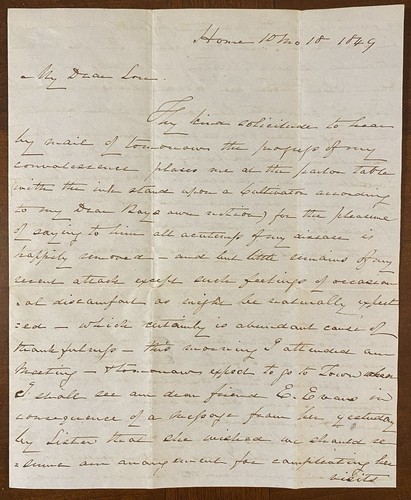 Home 10 Mo 18 1849
My Dear Son.
Thy kind solicitude to hear
by mail of tomorrows the progress of my
convalescence places me at the parlor table
with the ink stand upon a Cultivator according
to my Dear Boys own notion) for the pleasure
of saying to him all acuteness of my disease is
happily removed - and but little remains of my
recent attack except such feelings of occasion
-al discomfort as might be naturally expect
-ed - which certainly is abundant cause of
thankfulness - this morning I attended am
Meeting - & tomorrow expect to go to Town when
I shall see our dear friend E. Evans in
consequence of a Message from her yesterday
by Sister that she wished we should re
-sume an arrangement for completing her
visits